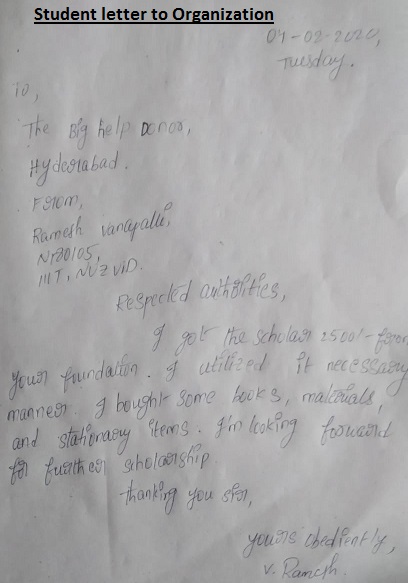 Student letter to Organization
04-02-2020,
Tuesday.
To,
The Big help Donor,
Hyderabad.
From,
Ramesh vanapalli,
N120105,
IIIT, NUZViD.
Respected authorities,
I got the scholar 2500/- from
your foundation. I utilized it necessary
manner. I bought some books, materials,
and stationary items. I'm looking forward
for further scholarship.
thanking you sir,
yours obediently,
V. Ramesh.